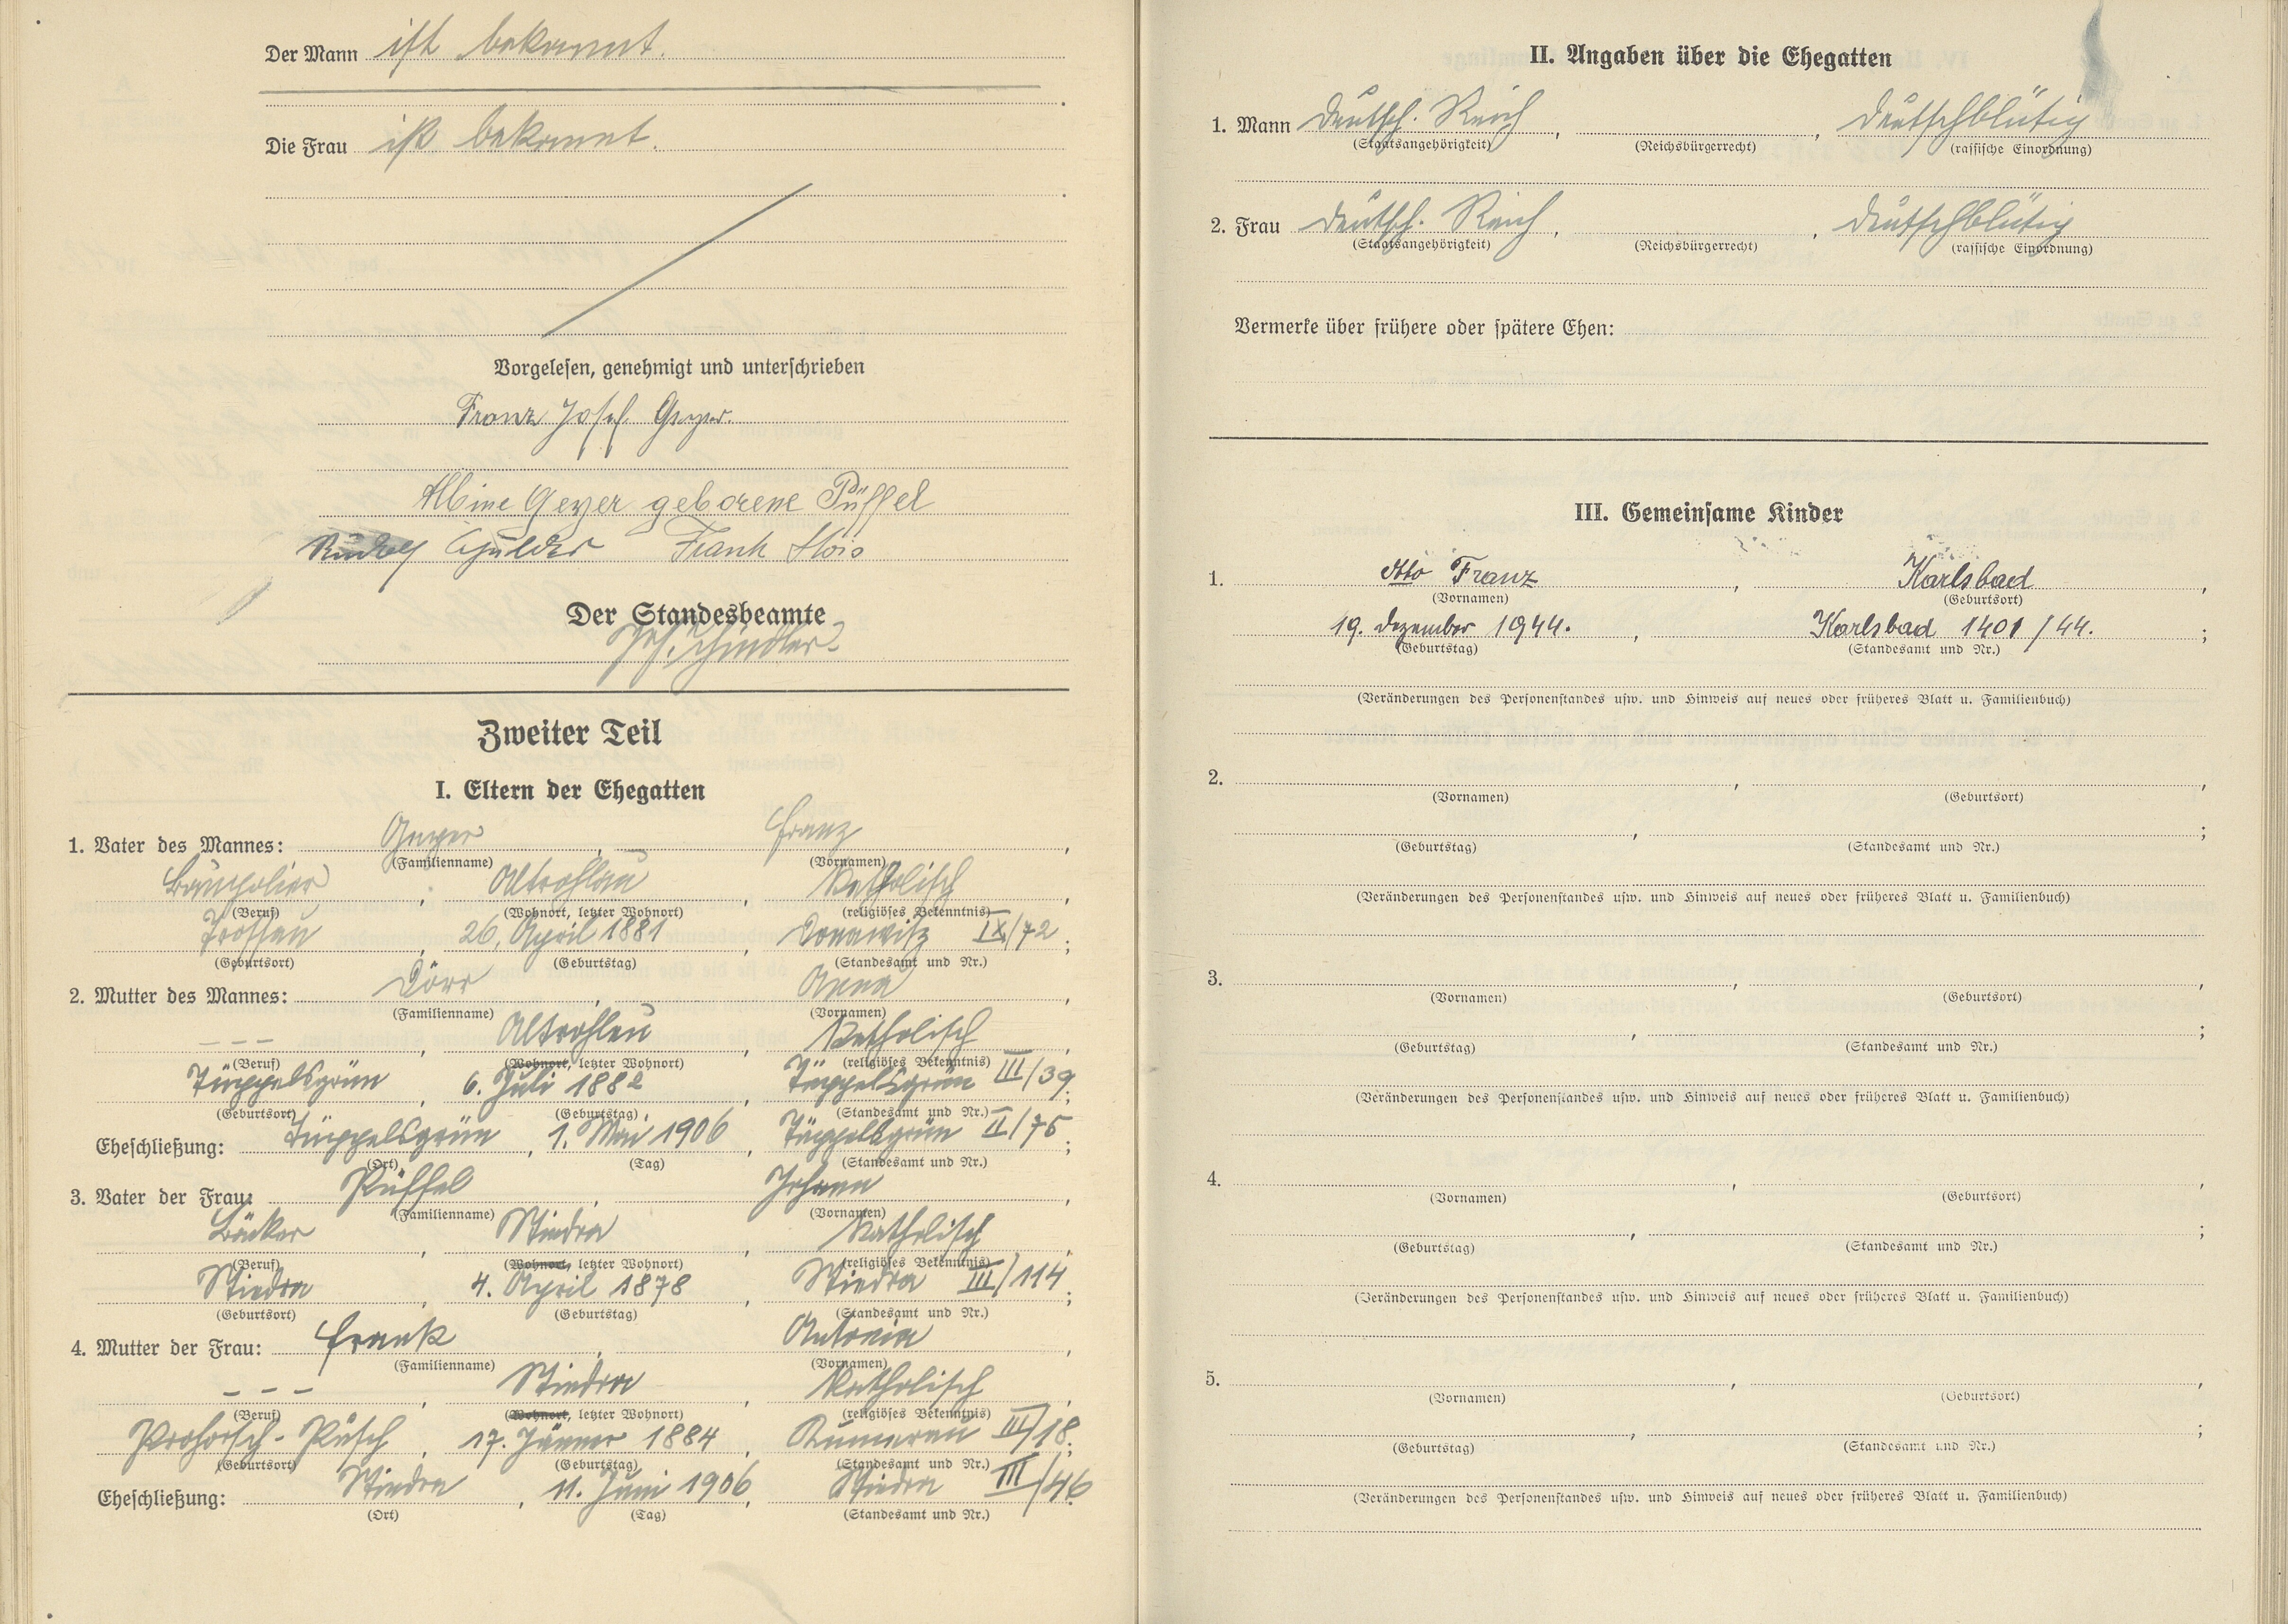 Der Mann ist bekannt.
Die Frau ist bekannt.
Vorgelesen, genehmigt und unterschrieben
Franz Josef Geyer.
Albine Geyer geborene Püffel
Rudolf Frank Alois
Der Standesbeamte
Jos. Schindler
Zweiter Teil
I. Eltern der Ehegatten
1. Vater des Mannes: Geyer, Franz,
(Familienname) (Vornamen)
Baupolier, Altrohlau, katholisch,
(Beruf) (Wohnort, letzter Wohnort) (religiöses Bekenntnis)
Trossau, 26. April 1881, Donawitz IX/72;
(Geburtsort) (Geburtstag) (Standesamt und Nr.)
2. Mutter des Mannes: Dörr, Anna,
(Familienname) (Vornamen)
- - -, Altrohlau, katholisch,
(Beruf) (Wohnort, letzter Wohnort) (religiöses Bekenntnis)
Tüppelsgrün, 6. Juli 1882, Tüppelsgrün III/39;
(Geburtsort) (Geburtstag) (Standesamt und Nr.)
Eheschließung: Tüppelsgrün, 1. Mai 1906, Tüppelsgrün II/75;
(Ort) (Tag) (Standesamt und Nr.)
3. Vater der Frau: Püffel, Johann,
(Familienname) (Vornamen)
Bäcker, Stiedra, katholisch,
(Beruf) (Wohnort, letzter Wohnort) (religiöses Bekenntnis)
Stiedra, 4. April 1878, Stiedra III/114;
(Geburtsort) (Geburtstag) (Standesamt und Nr.)
4. Mutter der Frau: Frank, Antonia,
(Familienname) (Vornamen)
- - -, Stiedra, katholisch,
(Beruf) (Wohnort, letzter Wohnort) (religiöses Bekenntnis)
Prohorsch-Püsch, 17. Jänner 1884, Kumerau III/18;
(Geburtsort) (Geburtstag) (Standesamt und Nr.)
Eheschließung: Stiedra, 11. Juni 1906, Stiedra III/46
(Ort) (Tag) (Standesamt und Nr.)
II. Angaben über die Ehegatten
1. Mann Deutsch. Reich, , deutschblütig
(Staatsangehörigkeit) (Reichsbürgerrecht) (rassische Einordnung)
2. Frau Deutsch. Reich, , deutschblütig
(Staatsangehörigkeit) (Reichsbürgerrecht) (rassische Einordnung)
Vermerke über frühere oder spätere Ehen:
III. Gemeinsame Kinder
1. Otto Franz, Karlsbad,
(Vornamen) (Geburtsort)
19. Dezember 1944., Karlsbad 1401/44.;
(Geburtstag) (Standesamt und Nr.)
(Veränderungen des Personenstandes usw. und Hinweis auf neues oder früheres Blatt u. Familienbuch)
2. , ,
(Vornamen) (Geburtsort)
, ;
(Geburtstag) (Standesamt und Nr.)
(Veränderungen des Personenstandes usw. und Hinweis auf neues oder früheres Blatt u. Familienbuch)
3. , ,
(Vornamen) (Geburtsort)
, ;
(Geburtstag) (Standesamt und Nr.)
(Veränderungen des Personenstandes usw. und Hinweis auf neues oder früheres Blatt u. Familienbuch)
4. , ,
(Vornamen) (Geburtsort)
, ;
(Geburtstag) (Standesamt und Nr.)
(Veränderungen des Personenstandes usw. und Hinweis auf neues oder früheres Blatt u. Familienbuch)
5. , ,
(Vornamen) (Geburtsort)
, ;
(Geburtstag) (Standesamt und Nr.)
(Veränderungen des Personenstandes usw. und Hinweis auf neues oder früheres Blatt u. Familienbuch)